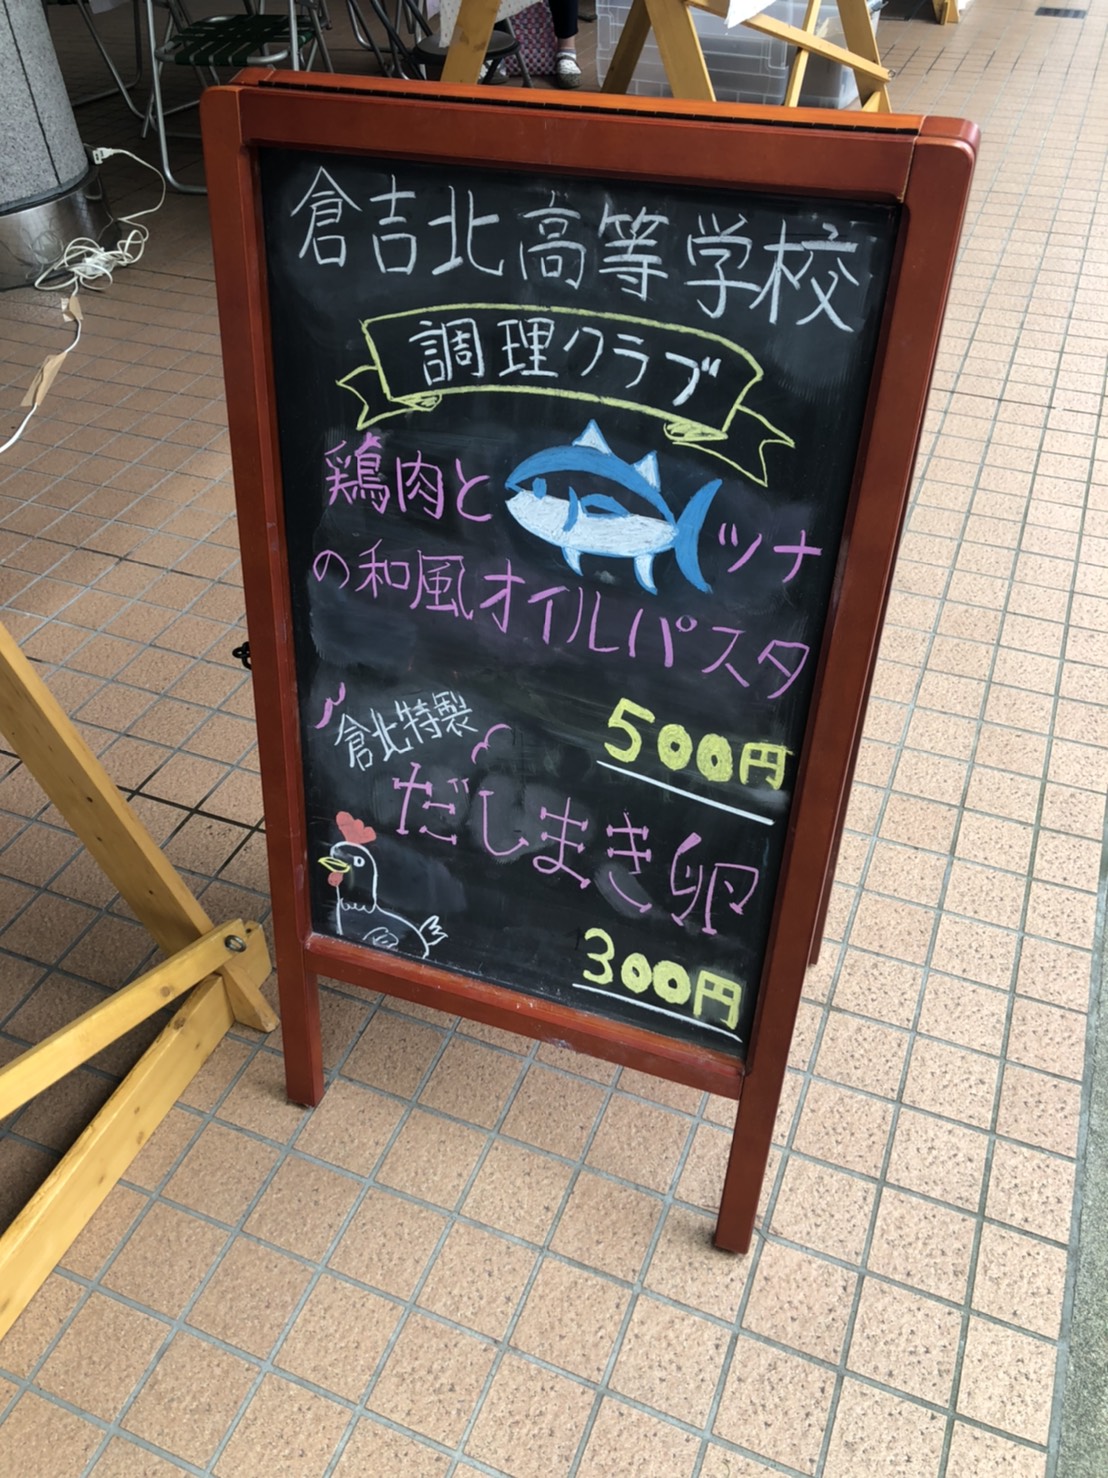 倉吉北高等学校
調理クラブ
鶏肉とツナ
の和風オイルパスタ
500円
倉北特製
だしまき卵
300円